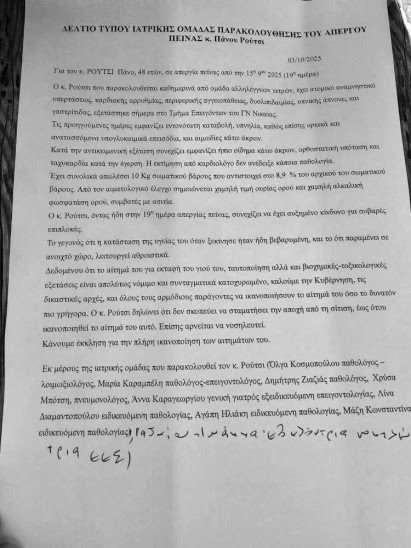 ΔΕΛΤΙΟ ΤΥΠΟΥ ΙΑΤΡΙΚΗΣ ΟΜΑΔΑΣ ΠΑΡΑΚΟΛΟΥΘΗΣΗΣ ΤΟΥ ΑΠΕΡΓΟΥ
ΠΕΙΝΑΣ κ. Πάνου Ρούτσι
03/10/2025
Για τον κ. ΡΟΥΤΣΙ Πάνο, 48 ετών, σε απεργία πείνας από την 15η 9ου 2025 (19η ημέρα)
Ο κ. Ρούτσι που παρακολουθείται καθημερινά από ομάδα αλληλέγγυων ιατρών, έχει ατομικό αναμνηστικό
υπέρτασης, καρδιακής αρρυθμίας, περιφερικής αγγειοπάθειας, δυσλιπιδαιμίας, υπνικής άπνοιας και
γαστρίτιδας, εξετάστηκε σήμερα στο Τμήμα Επειγόντων του ΓΝ Νικαίας.
Τις προηγούμενες ημέρες εμφανίζει εντονότατη καταβολή, υπνηλία, καθώς επίσης οριακά και
αναταασόμενα υπογλυκαιμικά επεισόδια, και αιμωδίες κάτω άκρων.
Κατά την αντικειμενική εξέταση συνεχίζει εμφανίζει ήπιο οίδημα κάτω άκρων, ορθοστατική υπόταση και
ταχυκαρδία κατά την έγερση. Η εκτίμηση από καρδιολόγο δεν ανέδειξε κάποια παθολογία.
Έχει συνολικά απωλέσει 10 Kg σωματικού βάρους που αντιστοιχεί στο 8,9 % του αρχικού του σωματικού
βάρους. Από τον αιματολογικό έλεγχο σημειώνεται χαμηλή τιμή ουρίας ορού και χαμηλή αλκαλική
φωσφατάση ορού, συμβατές με ασιτία.
Ο κ. Ρούτσι, όντας ήδη στην 19η ημέρα απεργίας πείνας, συνεχίζει να έχει αυξημένο κίνδυνο για σοβαρές
επιπλοκές.
Το γεγονός ότι η κατάσταση της υγείας του όταν ξεκίνησε ήταν ήδη βεβαρυμένη, και το ότι παραμένει σε
ανοιχτό χώρο, λειτουργεί αθροιστικά.
Δεδομένου ότι το αίτημά του για εκταφή του γιου του, ταυτοποίηση αλλά και βιοχημικές-τοξικολογικές
εξετάσεις είναι απολύτως νόμιμο και συνταγματικά κατοχυρωμένο, καλούμε την Κυβέρνηση, τις
δικαστικές αρχές, και όλους τους αρμόδιους παράγοντες να ικανοποιήσουν το αίτημά του όσο το δυνατόν
πιο γρήγορα. Ο κ. Ρούτσι δηλώνει ότι δεν σκοπεύει να σταματήσει την αποχή από τη σίτιση, έως ότου
ικανοποιηθεί το αίτημά του αυτό. Επίσης αρνείται να νοσηλευτεί.
Κάνουμε έκκληση για την πλήρη ικανοποίηση των αιτημάτων του.
Εκ μέρους της ιατρικής ομάδας που παρακολουθεί τον κ. Ρούτσι (Όλγα Κοσμοπούλου παθολόγος –
λοιμωξιολόγος, Μαρία Καραμπέλη παθολόγος-επειγοντολόγος, Δημήτρης Ζιαζιάς παθολόγος, Χρύσα
Μπότση, πνευμονολόγος, Άννα Καραγεωργίου γενική γιατρός εξειδικευόμενη επειγοντολογίας, Λίνα
Διαμαντοπούλου ειδικευόμενη παθολογίας, Αγάπη Ηλιάκη ειδικευόμενη παθολογίας, Μάξη Κωνσταντίνα
ειδικευόμενη παθολογίας,
τρια ΕΣΣ)